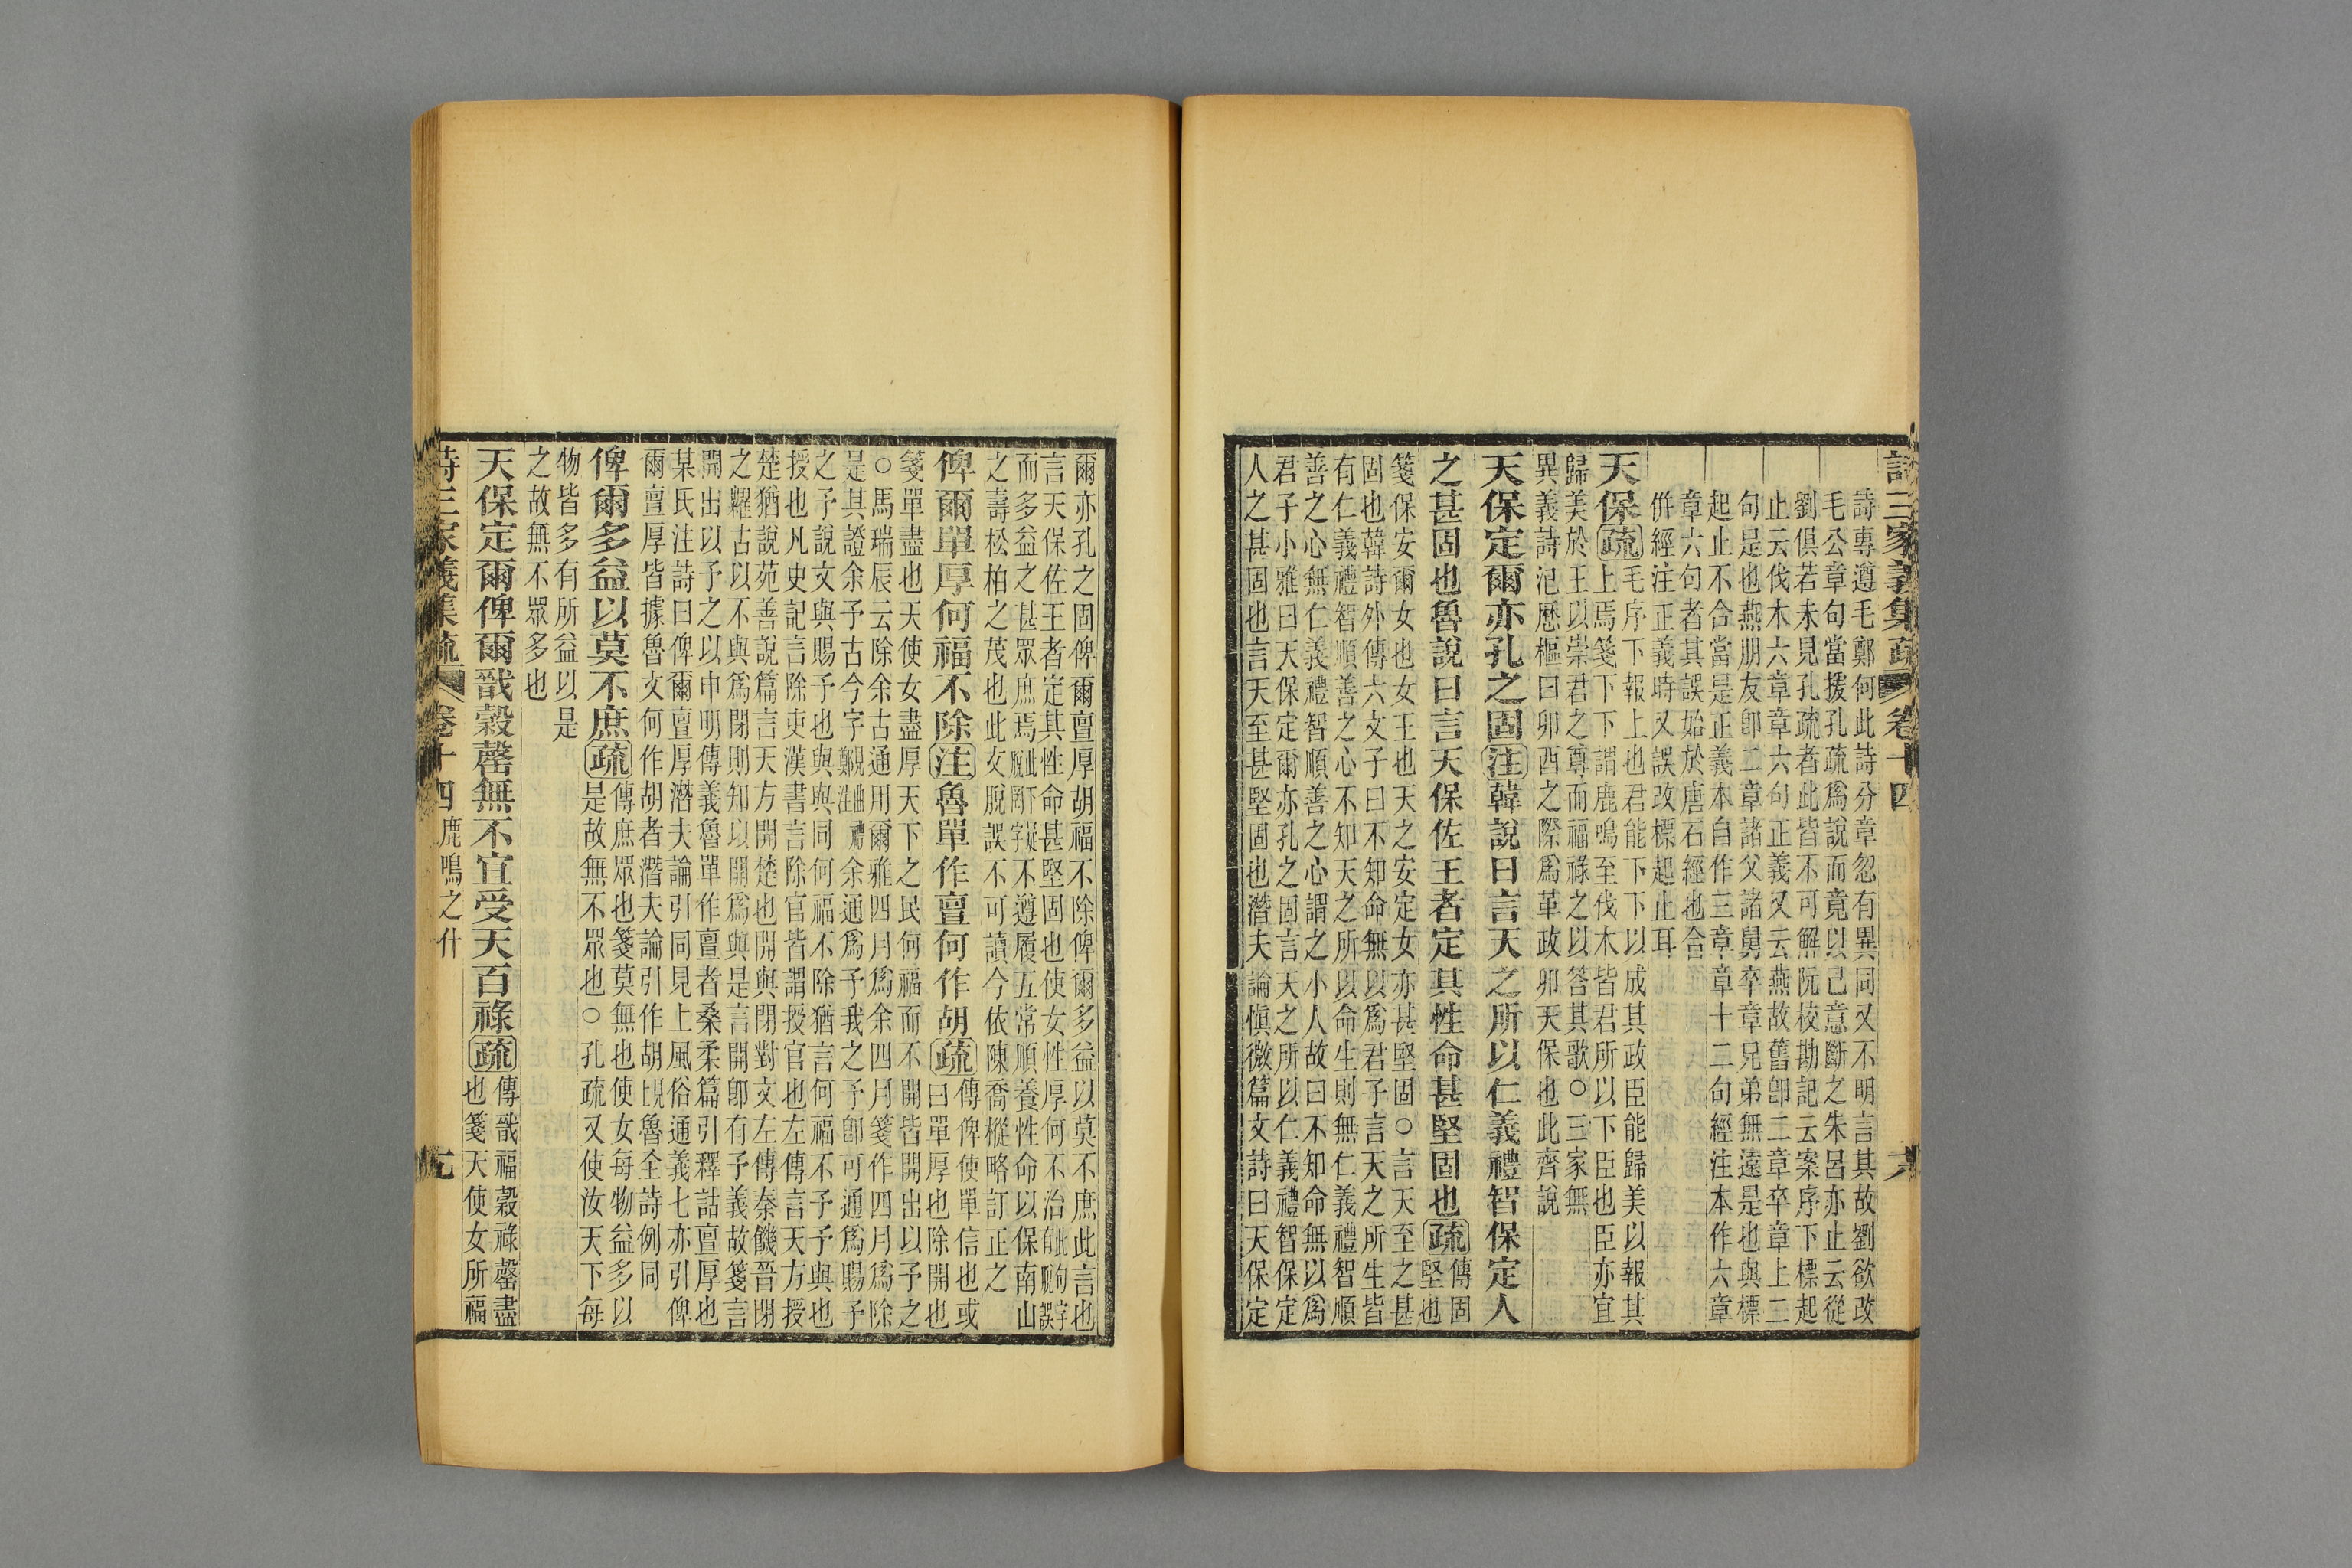 詩三家義集疏 卷十四
詩專遵毛鄭何此詩分章忽有異同又不明言其故劉欲改
毛公章句當援孔疏爲說而竟以己意斷之朱呂亦止云從
劉俱若未見孔疏者此皆不可解阮校勘記云案序下標起
止云伐木六章章六句正義又云燕故舊卽二章卒章上二
句是也燕朋友卽二章諸父諸舅卒章兄弟無遠是也與標
起止不合當是正義本自作三章章十二句經注本作六章
章六句者其誤始於唐石經也合
併經注正義時又誤改標起止耳
天保疏毛序下報上也君能下下以成其政臣能歸美以報其
上焉箋下下謂鹿鳴至伐木皆君所以下臣也臣亦宜
歸美於王以崇君之尊而福祿之以答其歌○三家無
異義詩汜歷樞曰卯酉之際爲革政卯天保也此齊說
天保定爾亦孔之固注韓說曰言天之所以仁義禮智保定人
之甚固也魯說曰言天保佐王者定其性命甚堅固也疏傳固
堅也
箋保安爾女也女王也天之安定女亦甚堅固○言天至之甚
固也韓詩外傳六文子曰不知命無以爲君子言天之所生皆
有仁義禮智順善之心不知天之所以命生則無仁義禮智順
善之心無仁義禮智順善之心謂之小人故曰不知命無以爲
君子小雅曰天保定爾亦孔之固言天之所以仁義禮智保定
人之甚固也言天至甚堅固也潛夫論愼微篇文詩曰天保定
爾亦孔之固俾爾亶厚胡福不除俾爾多益以莫不庶此言也
言天保佐王者定其性命甚堅固也使女性厚何不治此句有脫誤字
而多益之甚眾庶焉此下疑脫罔字不遵履五常順養性命以保南山
之壽松柏之茂也此文脫誤不可讀今依陳喬樅略訂正之
俾爾單厚何福不除注魯單作亶何作胡疏傳俾使單信也或
曰單厚也除開也
箋單盡也天使女盡厚天下之民何福而不開皆開出以予之
○馬瑞辰云除余古通用爾雅四月爲余四月箋作四月爲除
是其證余予古今字見曲禮鄭注余通爲予我之予卽可通爲賜予
之予說文與賜予也與與同何福不除猶言何福不予予與也
授也凡史記言除吏漢書言除官皆謂授官也左傳言天方授
楚猶說苑善說篇言天方開楚也開與閉對文左傳秦饑晉閉
之糶古以不與爲閉則知以開爲與是言開卽有予義故箋言
開出以予之以申明傳義魯單作亶者桑柔篇引釋詁亶厚也
某氏注詩曰俾爾亶厚潛夫論引同見上風俗通義七亦引俾
爾亶厚皆據魯文何作胡者潛夫論引作胡見上魯全詩例同
俾爾多益以莫不庶疏傳庶眾也箋莫無也使女每物益多以
是故無不眾也○孔疏又使汝天下每
物皆多有所益以是
之故無不眾多也
天保定爾俾爾戩穀罄無不宜受天百祿疏傳戩福穀祿罄盡
也箋天使女所福
詩三家義集疏 卷十四 鹿鳴之什